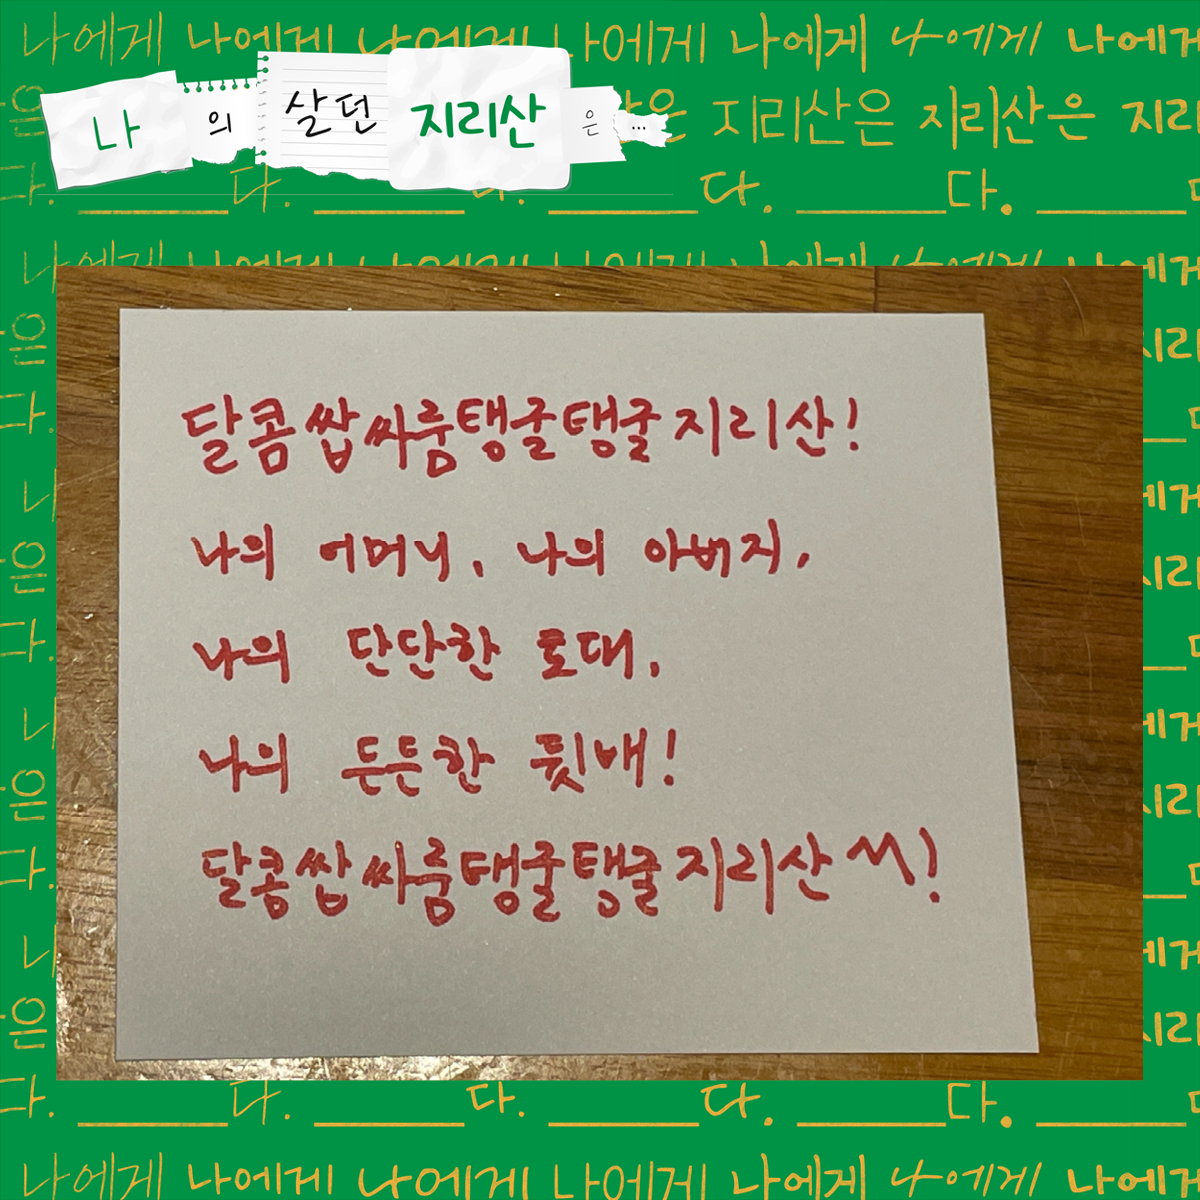 나에게 나에게 나에게 나에게 나에게 나에게 나에게
나의 살던 지리산은...
은 지리산은 지리산은 지리
다. 다. 다. 다. 다.
달콤쌉싸룸탱굴탱굴지리산!
나의 어머니, 나의 아버지,
나의 단단한 토대,
나의 든든한 뒷배!
달콤쌉싸룸탱굴탱굴지리산~!
다. 다. 다. 다. 다.
나에게 나에게 나에게 나에게 나에게 나에게 나에게